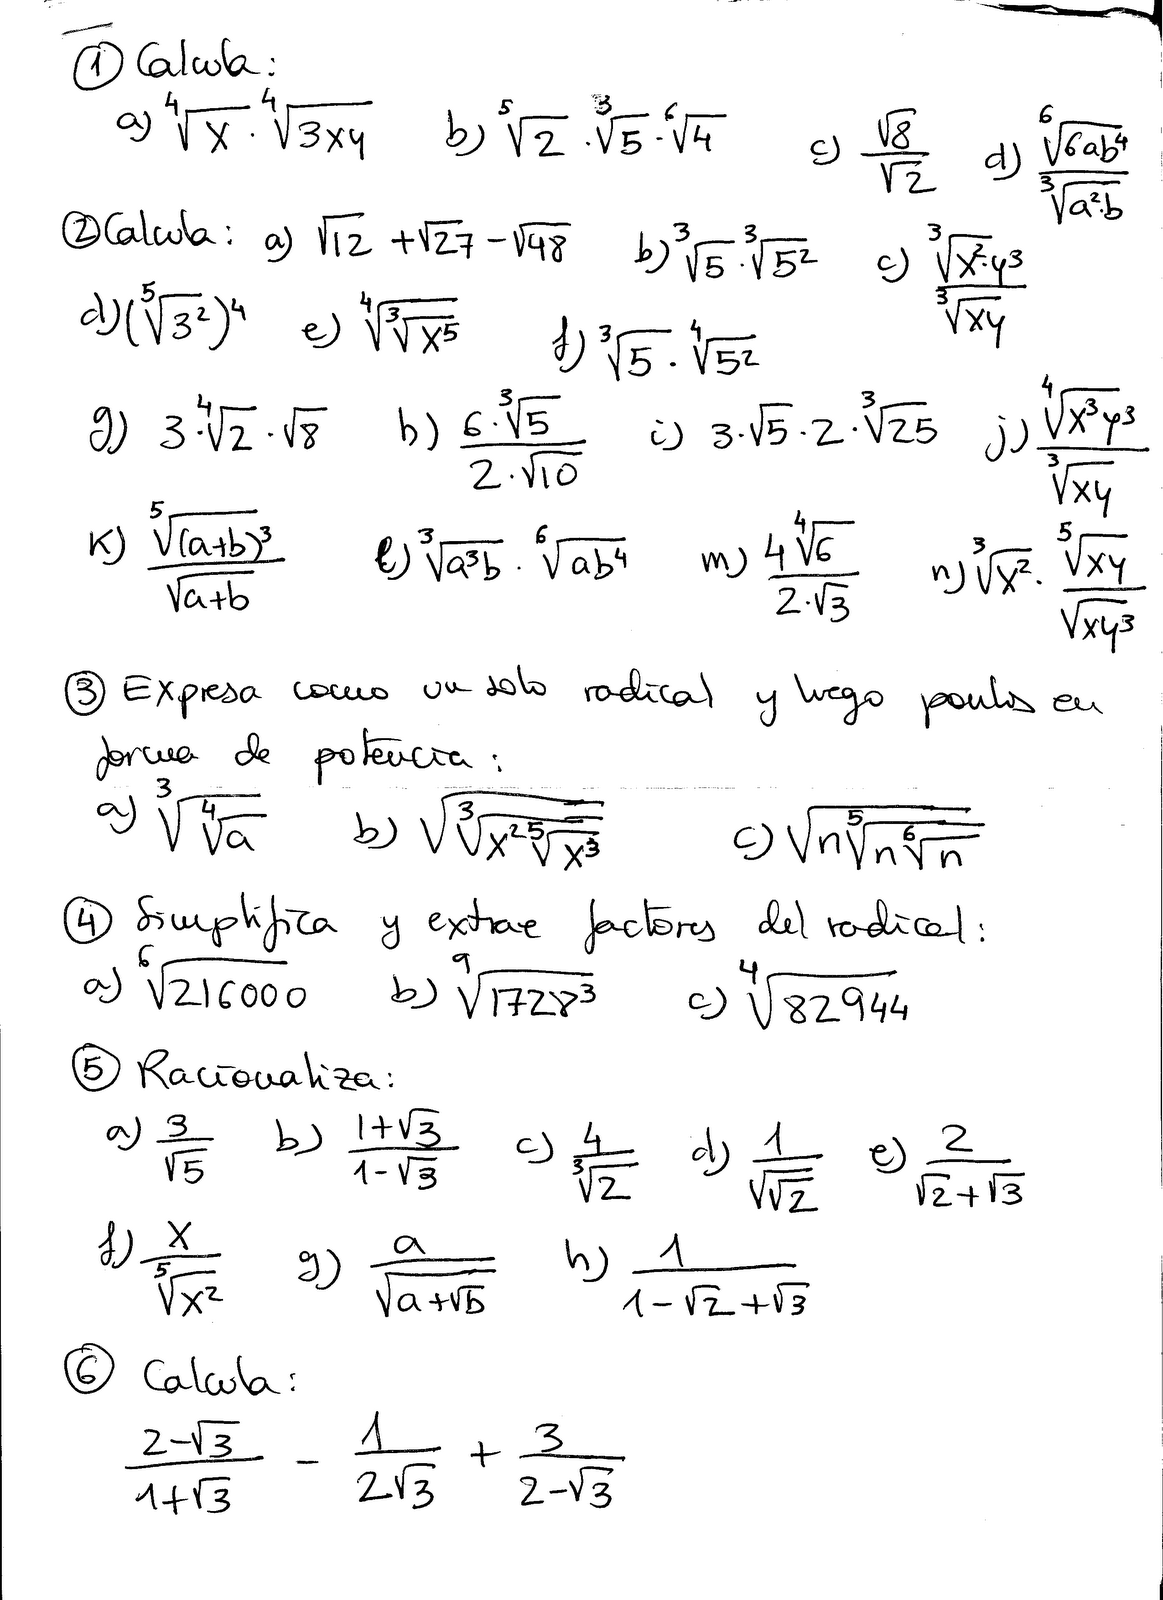 ① Calcula:
a) ⁴√x · ⁴√(3xy)   b) ⁵√2 · ³√5 · ⁶√4   c) √8/√2   d) ⁶√(6ab⁴)/³√(a²·b)
② Calcula: a) √12 + √27 − √48   b) ³√5 · ³√(5²)   c) ³√(x²·y³)/³√(xy)
d) (⁵√(3²))⁴   e) ⁴√(³√(x⁵))   f) ³√5 · ⁴√(5²)
g) 3·⁴√2 · √8   h) (6·³√5)/(2·√10)   i) 3·√5·2·³√25   j) ⁴√(x³y³)/³√(xy)
K) ⁵√((a+b)³)/√(a+b)   l) ³√(a³b) · ⁶√(ab⁴)   m) (4 ⁴√6)/(2·√3)   n) ³√(x²) · ⁵√(xy)/√(xy³)
③ Expresa como un solo radical y luego ponlos en
forma de potencia:
a) ³√(⁴√a)   b) √(³√(x² ⁵√(x³)))   c) √(n ⁵√(n ⁶√n))
④ Simplifica y extrae factores del radical:
a) ⁶√216000   b) ⁹√(1728³)   c) ⁴√82944
⑤ Racionaliza:
a) 3/√5   b) (1+√3)/(1−√3)   c) 4/³√2   d) 1/√(√2)   e) 2/(√2+√3)
f) x/⁵√(x²)   g) a/√(a+√b)   h) 1/(1−√2+√3)
⑥ Calcula:
(2−√3)/(1+√3) − 1/(2√3) + 3/(2−√3)